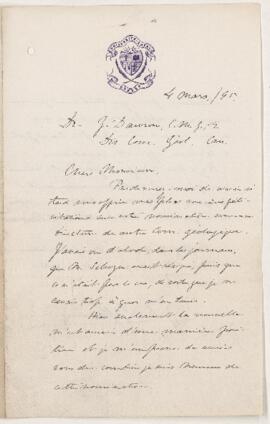 4 Mars, /95
Dr G. Dawson, C.M.G.
Dir. Com. Géol. Can.
Cher Monsieur,
Pardonnez-moi de venir si
tard vous offrir mes plus sincères féli-
citations sur votre nomination comme
directeur de notre Com. géologique.
J'avais vu d'abord, dans les journaux,
que M. Selwyn
n'était pas le cas, de sorte que je ne
savais trop à quoi m'en tenir.
Hier seulement la nouvelle
m'est arrivée d'une manière posi-
tive et je m'empresse de venir
vous dire combien je suis heureux de
cette nomination.